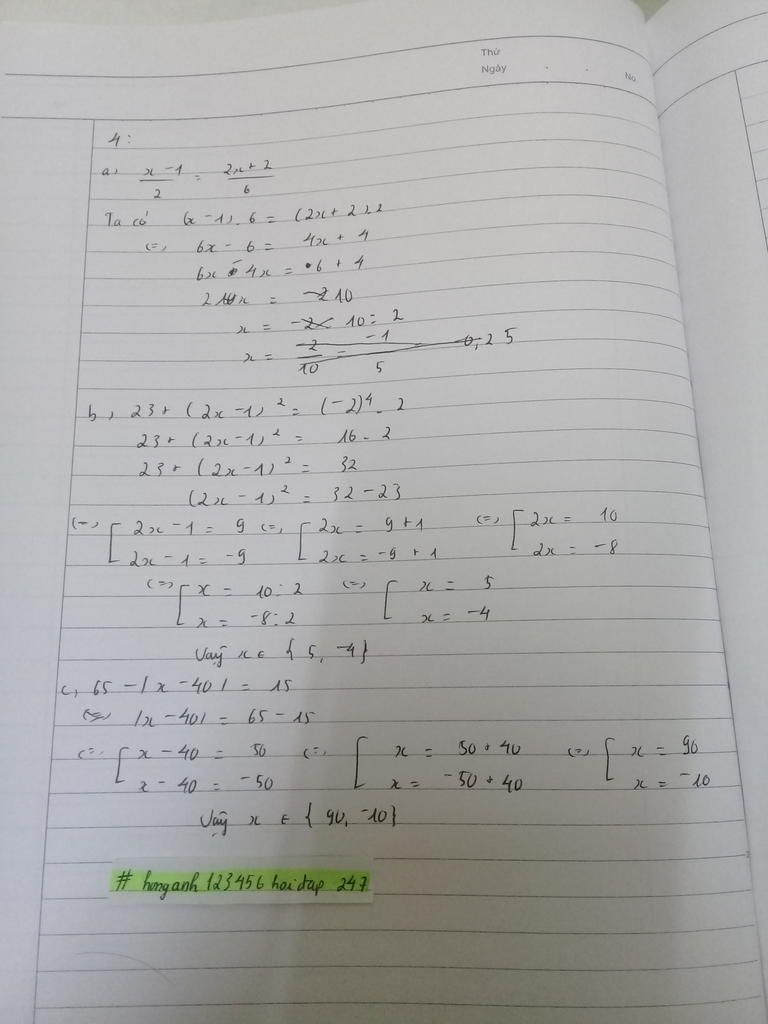 Thứ
Ngày . . No.
4:
a, x-1/2 = 2x+2/6
Ta có (x-1).6 = (2x+2).2
<=> 6x - 6 = 4x + 4
6x - 4x = 6 + 4
2x = 10
x = 10 : 2
x = 5
b, 23 + (2x-1)² = (-2)⁴.2
23 + (2x-1)² = 16.2
23 + (2x-1)² = 32
(2x-1)² = 32-23
<=> [ 2x-1 = 9 <=> [ 2x = 9+1 <=> [ 2x = 10
2x-1 = -9 2x = -9+1 2x = -8
<=> [ x = 10:2 <=> [ x = 5
x = -8:2 x = -4
Vaỹ x ∈ {5, -4}
c, 65 - |x-40| = 15
<=> |x-40| = 65-15
<=> [ x-40 = 50 <=> [ x = 50+40 <=> [ x = 90
x-40 = -50 x = -50+40 x = -10
Vaỹ x ∈ {90, -10}
# honganh123456 hoidap 247